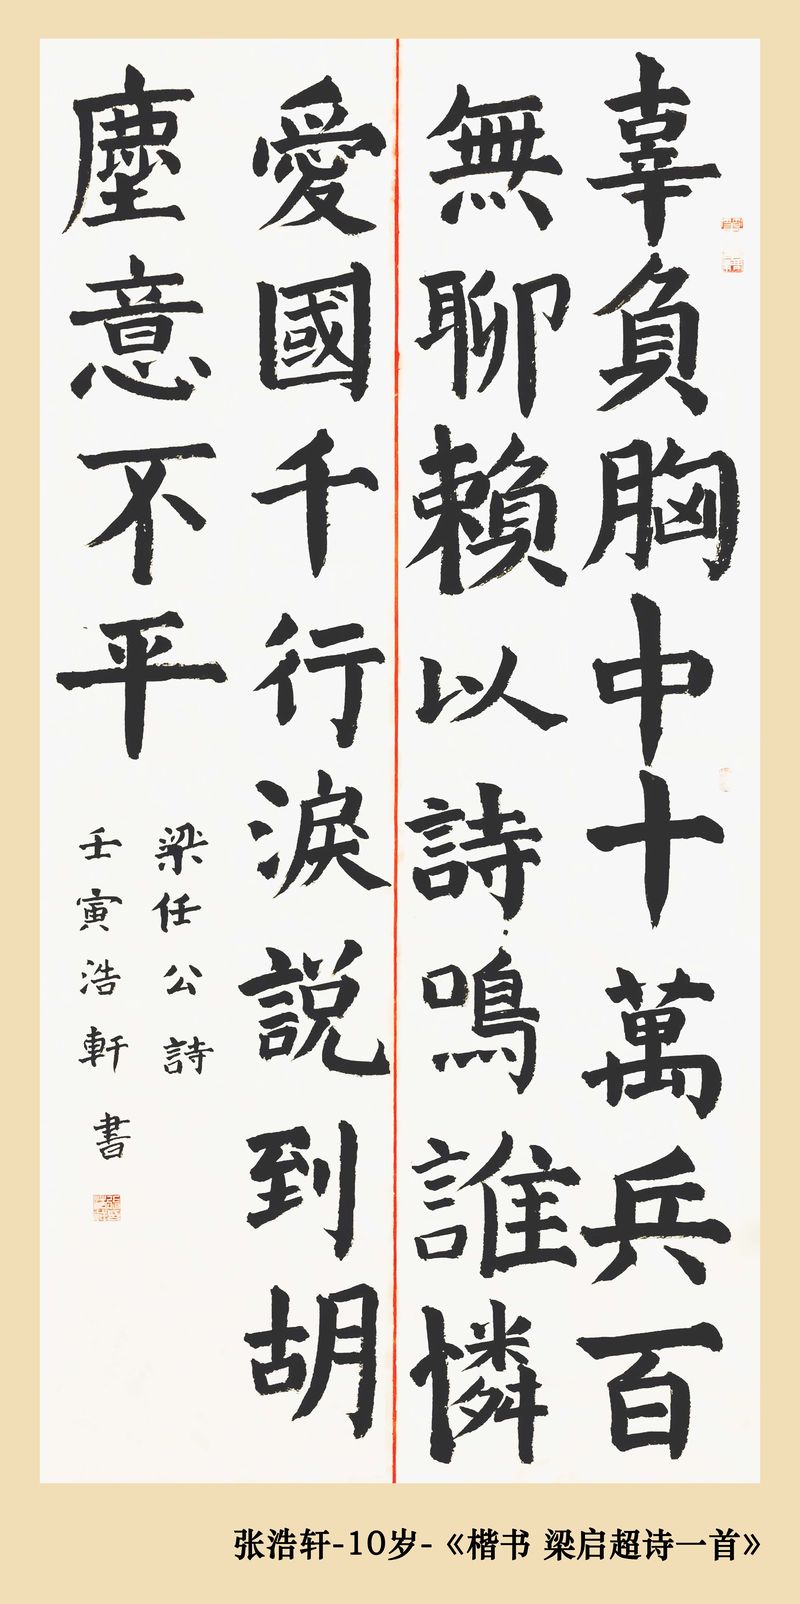 辜負胸中十萬兵百
無聊賴以詩鳴誰憐
愛國千行淚説到胡
塵意不平
梁任公詩
壬寅浩軒書
张浩轩-10岁-《楷书 梁启超诗一首》